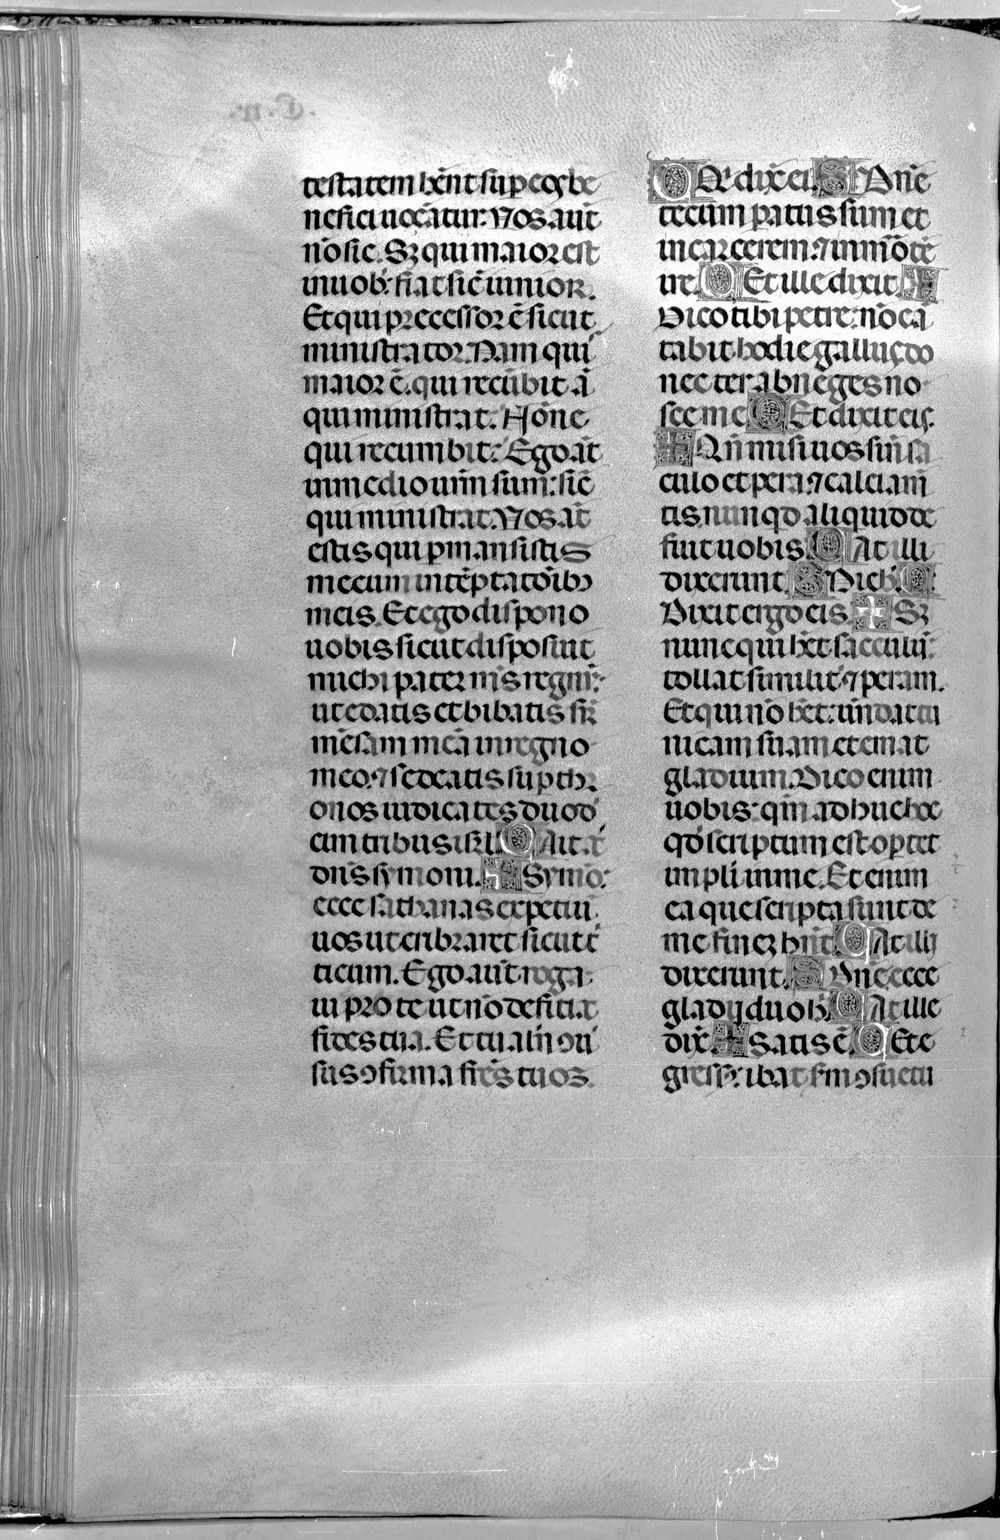 testatem hn̄t sup eos be
nefici uocātur. Nos aūt
nō sic. Sꝫ qui maior est
in uob̄. fiat sic̄ iunior.
Et qui precessor ē sicut
ministrator. Nam qui
maior ē. qui recūbit ā
qui ministrat. Nōne
qui recumbit. Ego āt
in medio ur̄m sum. sic̄
qui ministrat. Nos āt
estis qui ꝑmansistis
mecum in tēptatōibꝫ
meis. Et ego dispono
uobis sicut disposuit
michi pater m̄s regnū.
ut edatis et bibatis sr̄
mēsam meā in regno
meo. ⁊ sedeatis sup thr
onos iudicātes duod
cim tribus isrl̄. C Ait āt
dn̄s symoni. ✠ Symō.
ecce sathanas expetiui
uos ut cribraret sicut t̄
ticum. Ego aūt roga
ui pro te ut nō deficiat
fides tua. Et tu aln̄ ꝯu
sus ꝯfirma frēs tuos.
C Qr dix̄ ei. S Dn̄e
tecum paratus sum et
in carcerem. ⁊ in mōtē
ire. C Et ille dixit. ✠
Dico tibi petre. nō cā
tabit hodie gallus do
nec ter abneges no
sce me. C Et dixit eis.
✠ Qn̄ misi uos sin̄ sa
culo et pera. ⁊ calciam̄
tis. nunqd aliquid de
fiut uobis. C At illi
dixerunt. S Nich̄. C
Dixit ergo eis. ✠ Sꝫ
nunc qui hēt sacculū.
tollat similit̄ ⁊ peram.
Et qui nō hēt. uēdat tu
nicam suam et emat
gladium. Dico enim
uobis. qm̄ adhuc hoc
qd scriptum est oportet
impli in me. Et enim
ea que scripta sunt de
me finez hn̄t. C At illi
dixerunt. S Dn̄e ecce
gladij duo h̄. C At ille
dix̄. ✠ Satis ē. C Et e
gress. ibat sm̄ ꝯsuetu